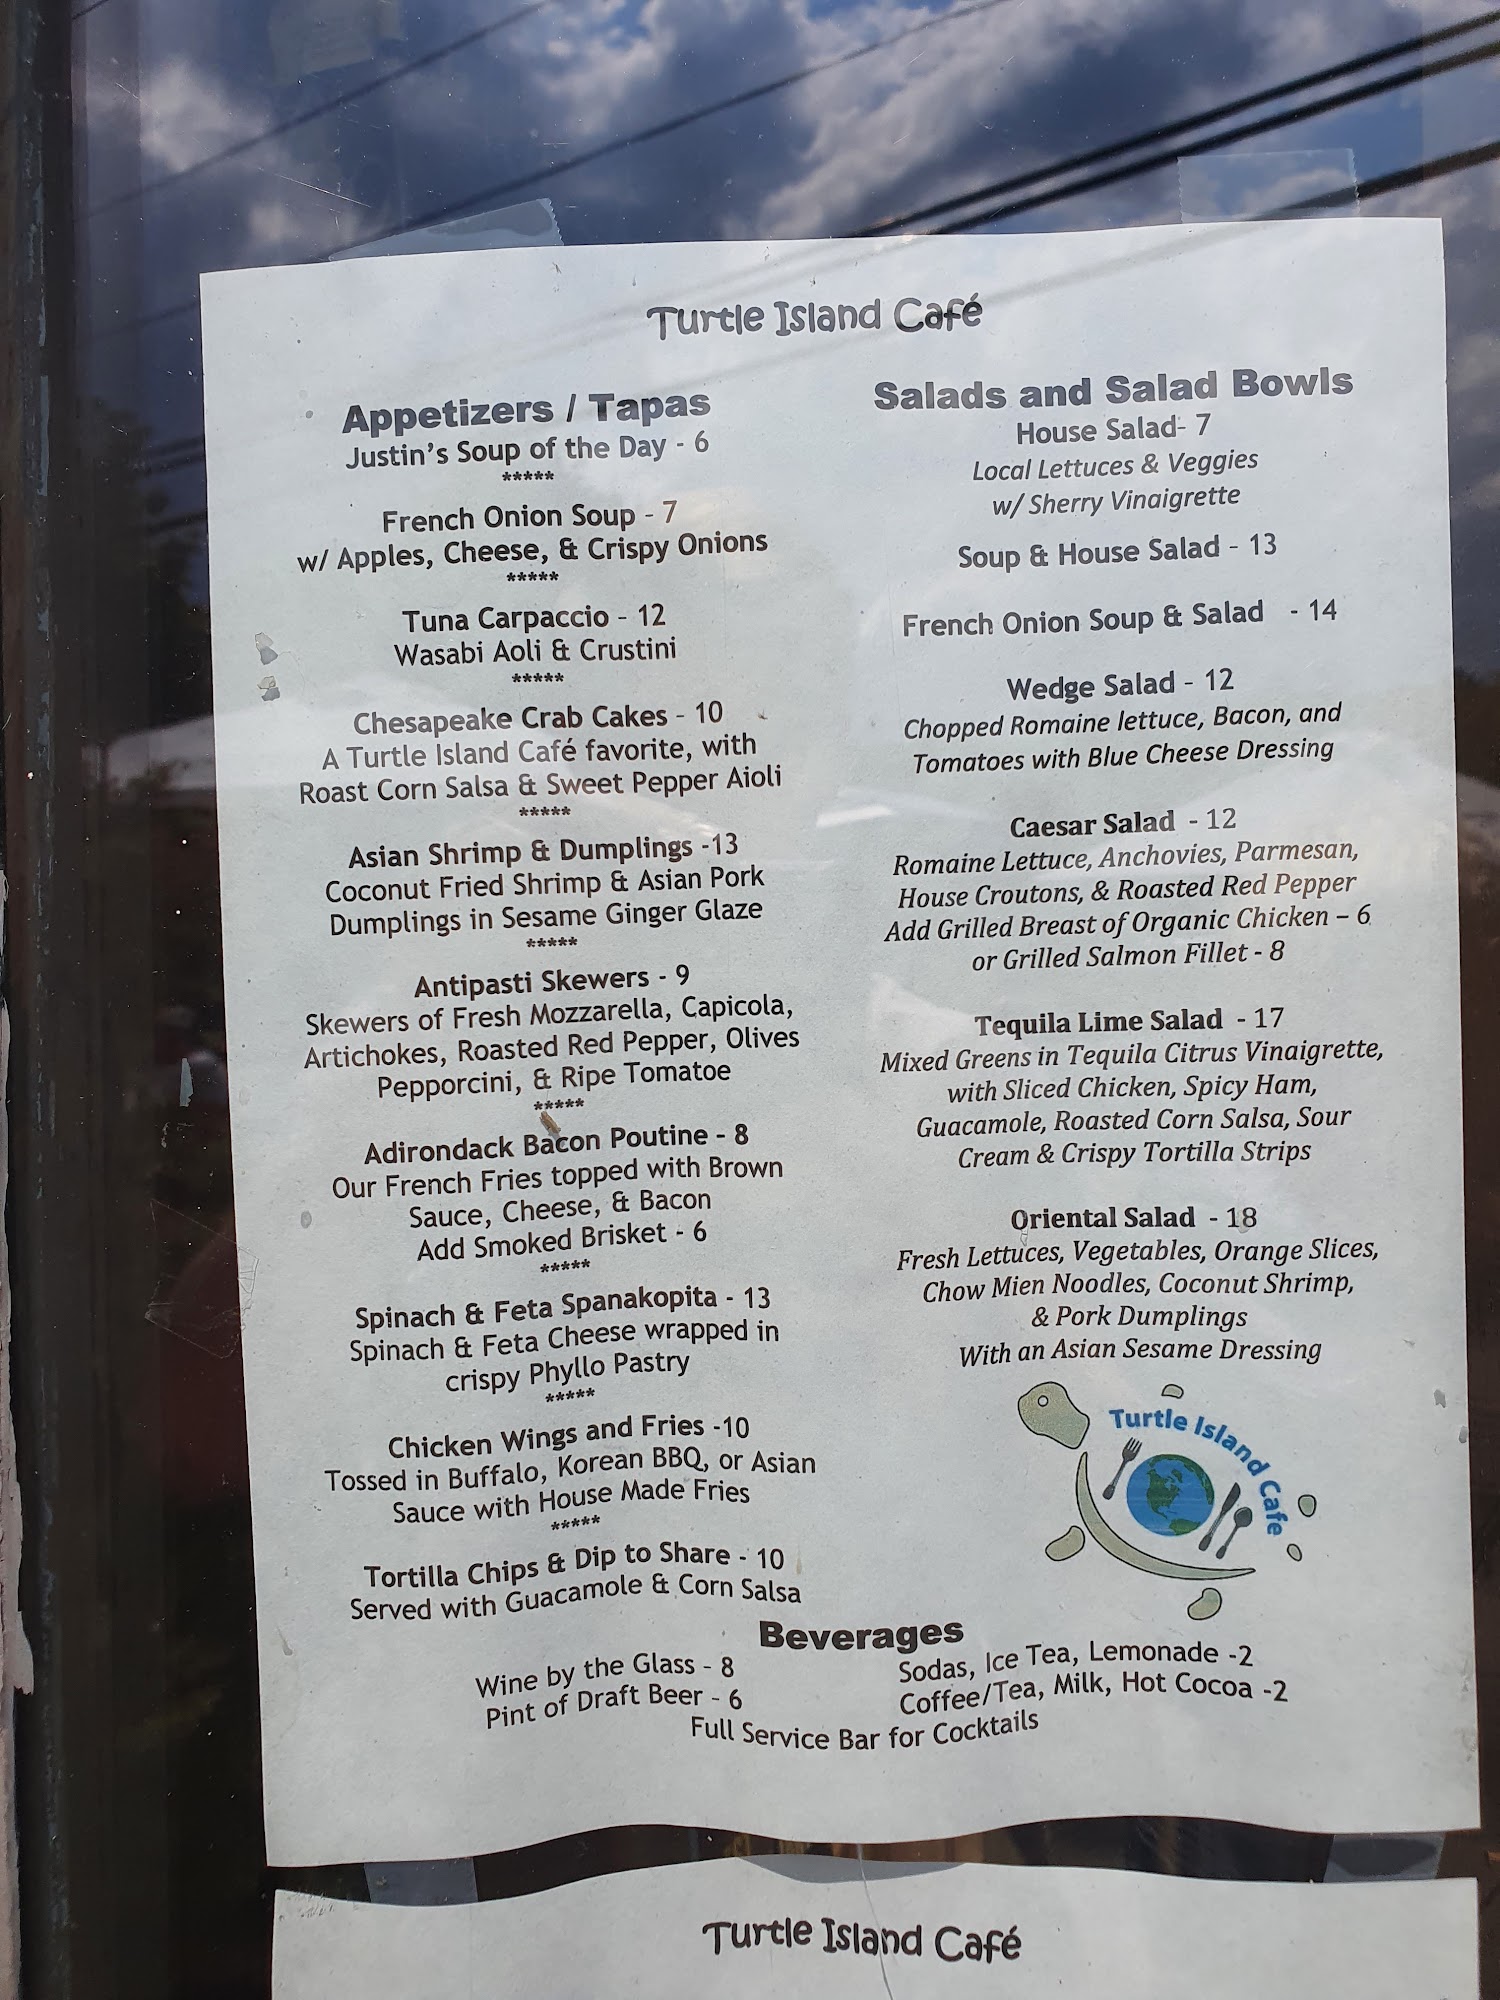 Turtle Island Café
Appetizers / Tapas
Justin's Soup of the Day - 6
*****
French Onion Soup - 7
w/ Apples, Cheese, & Crispy Onions
*****
Tuna Carpaccio - 12
Wasabi Aoli & Crustini
*****
Chesapeake Crab Cakes - 10
A Turtle Island Café favorite, with
Roast Corn Salsa & Sweet Pepper Aioli
*****
Asian Shrimp & Dumplings -13
Coconut Fried Shrimp & Asian Pork
Dumplings in Sesame Ginger Glaze
*****
Antipasti Skewers - 9
Skewers of Fresh Mozzarella, Capicola,
Artichokes, Roasted Red Pepper, Olives
Pepporcini, & Ripe Tomatoe
*****
Adirondack Bacon Poutine - 8
Our French Fries topped with Brown
Sauce, Cheese, & Bacon
Add Smoked Brisket - 6
*****
Spinach & Feta Spanakopita - 13
Spinach & Feta Cheese wrapped in
crispy Phyllo Pastry
*****
Chicken Wings and Fries -10
Tossed in Buffalo, Korean BBQ, or Asian
Sauce with House Made Fries
*****
Tortilla Chips & Dip to Share - 10
Served with Guacamole & Corn Salsa
Salads and Salad Bowls
House Salad- 7
Local Lettuces & Veggies
w/ Sherry Vinaigrette
Soup & House Salad - 13
French Onion Soup & Salad - 14
Wedge Salad - 12
Chopped Romaine lettuce, Bacon, and
Tomatoes with Blue Cheese Dressing
Caesar Salad - 12
Romaine Lettuce, Anchovies, Parmesan,
House Croutons, & Roasted Red Pepper
Add Grilled Breast of Organic Chicken – 6
or Grilled Salmon Fillet - 8
Tequila Lime Salad - 17
Mixed Greens in Tequila Citrus Vinaigrette,
with Sliced Chicken, Spicy Ham,
Guacamole, Roasted Corn Salsa, Sour
Cream & Crispy Tortilla Strips
Oriental Salad - 18
Fresh Lettuces, Vegetables, Orange Slices,
Chow Mien Noodles, Coconut Shrimp,
& Pork Dumplings
With an Asian Sesame Dressing
Turtle Island Cafe
Beverages
Wine by the Glass - 8
Pint of Draft Beer - 6
Sodas, Ice Tea, Lemonade -2
Coffee/Tea, Milk, Hot Cocoa -2
Full Service Bar for Cocktails
Turtle Island Café